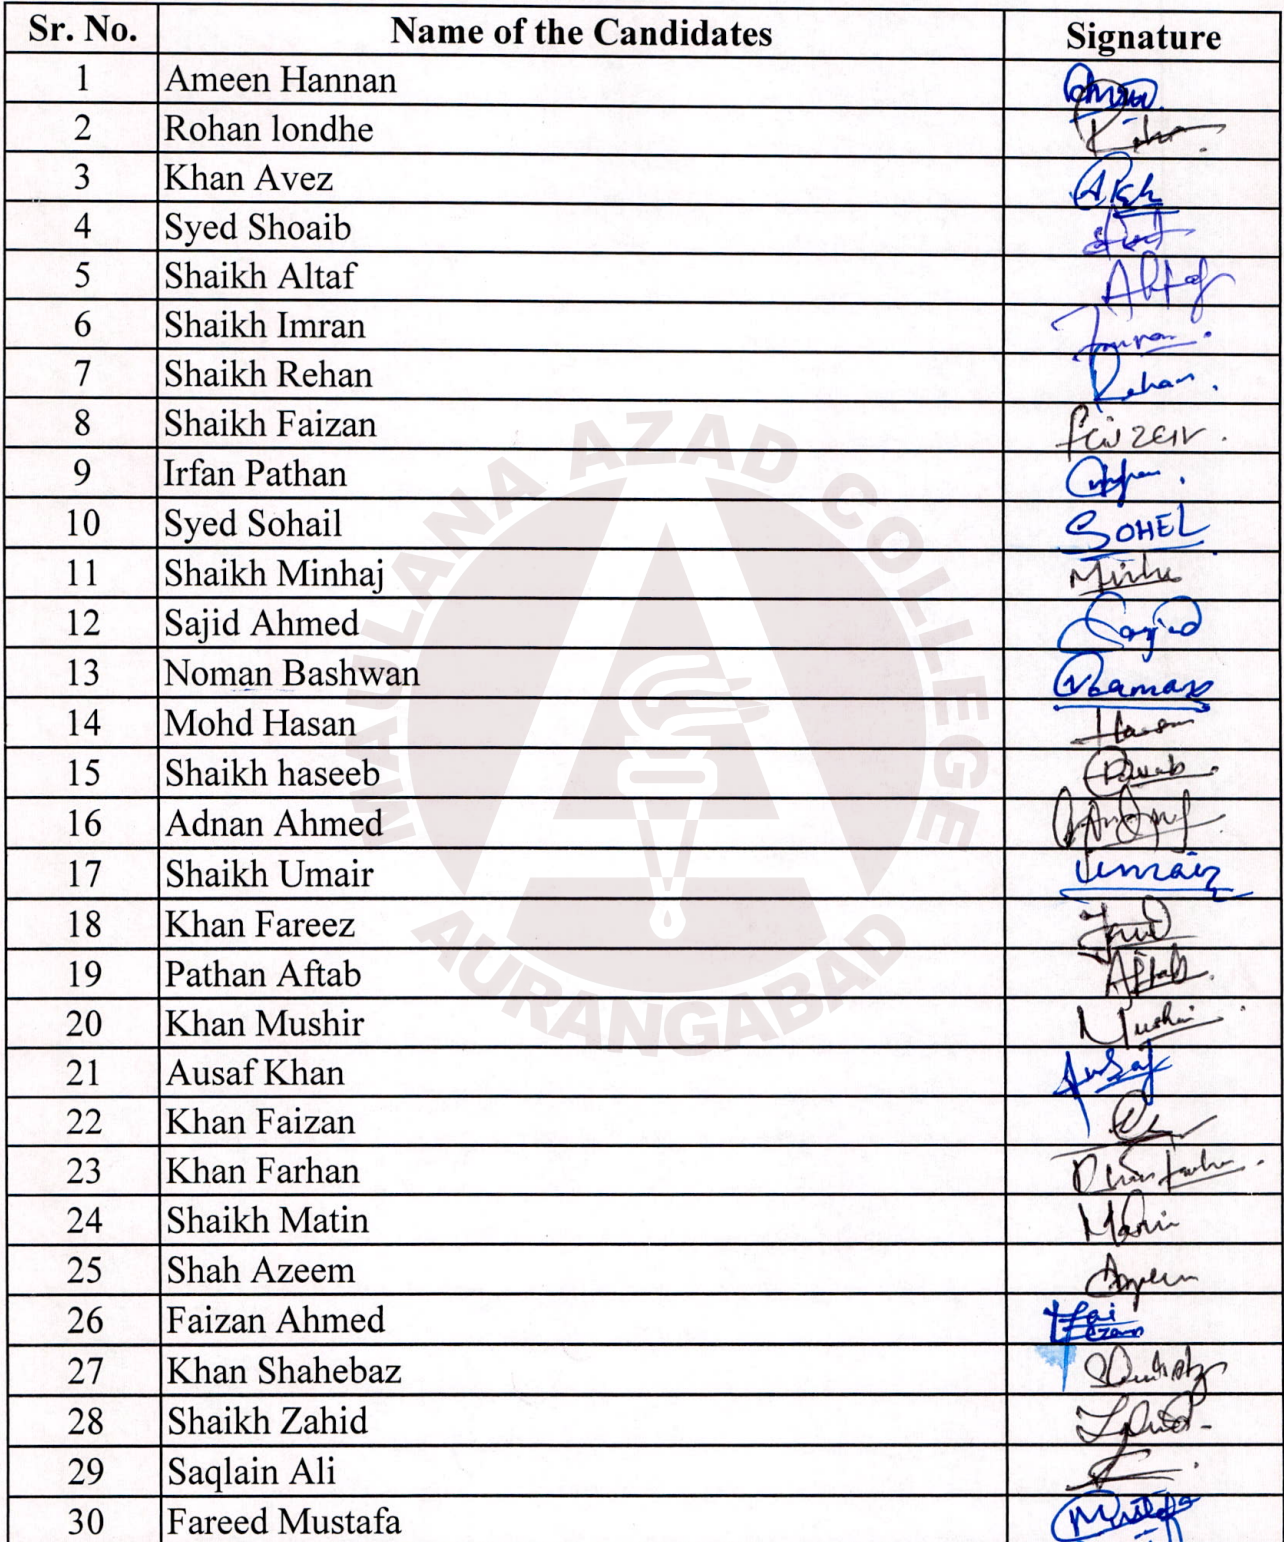 Sr. No. Name of the Candidates Signature
1 Ameen Hannan
2 Rohan londhe
3 Khan Avez
4 Syed Shoaib
5 Shaikh Altaf Altaf
6 Shaikh Imran Imran.
7 Shaikh Rehan Rehan.
8 Shaikh Faizan
9 Irfan Pathan
10 Syed Sohail SOHEL
11 Shaikh Minhaj
12 Sajid Ahmed Sajid
13 Noman Bashwan
14 Mohd Hasan Hasan
15 Shaikh haseeb
16 Adnan Ahmed
17 Shaikh Umair Umair
18 Khan Fareez
19 Pathan Aftab Aftab.
20 Khan Mushir Mushir
21 Ausaf Khan Ausaf
22 Khan Faizan
23 Khan Farhan
24 Shaikh Matin
25 Shah Azeem
26 Faizan Ahmed
27 Khan Shahebaz
28 Shaikh Zahid
29 Saqlain Ali
30 Fareed Mustafa Mustafa
MAULANA AZAD COLLEGE
AURANGABAD